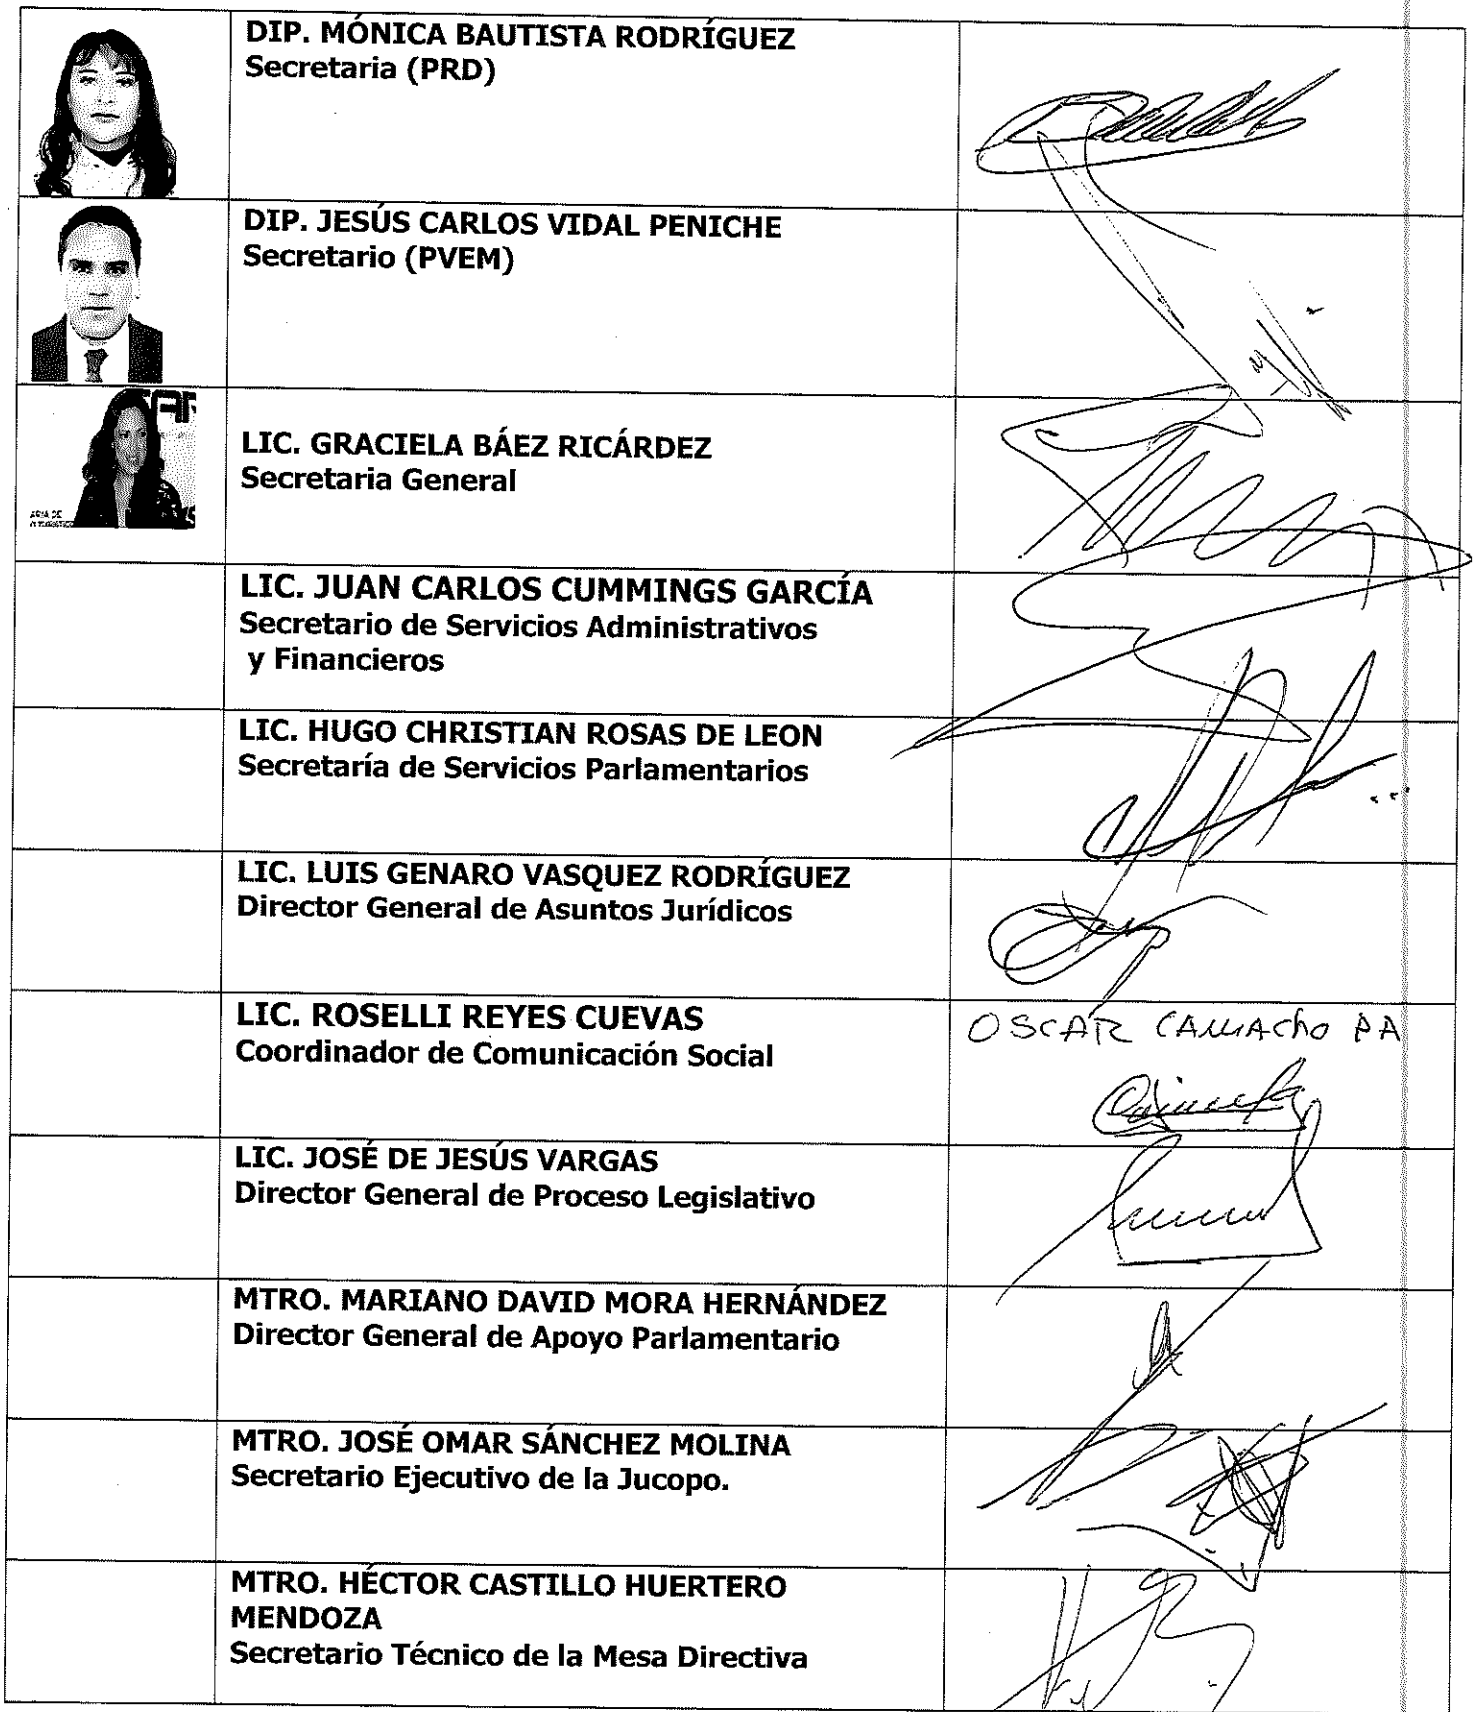 DIP. MÓNICA BAUTISTA RODRÍGUEZ
Secretaria (PRD)
DIP. JESÚS CARLOS VIDAL PENICHE
Secretario (PVEM)
LIC. GRACIELA BÁEZ RICÁRDEZ
Secretaria General
LIC. JUAN CARLOS CUMMINGS GARCÍA
Secretario de Servicios Administrativos
y Financieros
LIC. HUGO CHRISTIAN ROSAS DE LEON
Secretaría de Servicios Parlamentarios
LIC. LUIS GENARO VASQUEZ RODRÍGUEZ
Director General de Asuntos Jurídicos
LIC. ROSELLI REYES CUEVAS
Coordinador de Comunicación Social
OSCAR CAMACho PA
LIC. JOSÉ DE JESÚS VARGAS
Director General de Proceso Legislativo
MTRO. MARIANO DAVID MORA HERNÁNDEZ
Director General de Apoyo Parlamentario
MTRO. JOSÉ OMAR SÁNCHEZ MOLINA
Secretario Ejecutivo de la Jucopo.
MTRO. HÉCTOR CASTILLO HUERTERO
MENDOZA
Secretario Técnico de la Mesa Directiva